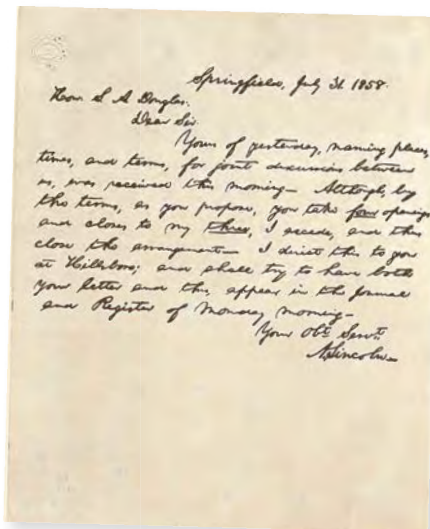 Springfield, July 31. 1858.
Hon. S. A. Douglas.
Dear Sir
Yours of yesterday, naming places,
times, and terms, for joint discussions between
us, was received this morning— Although, by
the terms, as you propose, you take four openings
and closes to my three, I accede, and thus
close the arrangement— I direct this to you
at Hillsboro; and shall try to have both
your letter and this, appear in the Journal
and Register of Monday morning—
Your Obt. Servt.
A. Lincoln—